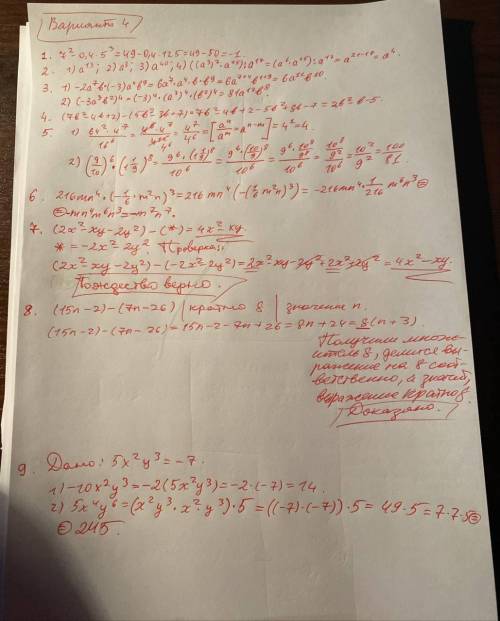 Вариант 4
1. 7² - 0,4·5³ = 49 - 0,4·125 = 49 - 50 = -1.
2. 1) a¹³; 2) a³; 3) a⁴⁰; 4) ((a³)²·a¹⁵):a¹⁷ = (a⁶·a¹⁵):a¹⁷ = a²¹⁻¹⁷ = a⁴.
3. 1) -2a⁷b·(-3)a⁴b⁹ = 6a⁷·a⁴·b·b⁹ = 6a⁷⁺⁴b¹⁺⁹ = 6a¹¹b¹⁰.
2) (-3a³b²)⁴ = (-3)⁴·(a³)⁴·(b²)⁴ = 81a¹²b⁸.
4. (7b² - 4b + 2) - (5b² - 3b + 7) = 7b² - 4b + 2 - 5b² + 3b - 7 = 2b² - b - 5.
= [aⁿ/aᵐ = aⁿ⁻ᵐ] = 4¹ = 4.
2) (9/10)⁶·(1 1/9)⁸ = 9⁶·(1 1/9)⁸/10⁶ = 9⁶·(10/9)⁸/10⁶ = 10²/9² = 100/81
6. 216mn⁴·(-1/6·m²n)³ = 216mn⁴·(-(1/6 m²n)³) = -216mn⁴·1/216 m⁶n³ ⊜
7. (2x² - xy - 2y²) - (*) = 4x² - xy.
* = -2x² - 2y². Проверка:
(2x² - xy - 2y²) - (-2x² - 2y²) = 2x² - xy - 2y² + 2x² + 2y² = 4x² - xy.
Тождество верно.
8. (15n - 2) - (7n - 26) | кратно 8 | значении n.
(15n - 2) - (7n - 26) = 15n - 2 - 7n + 26 = 8n + 24 = 8(n + 3).
Получили множ-
итель 8, делится вы-
ражение на 8 соот-
ветственно, а значит,
выражение кратно 8.
Доказано.
9. Дано: 5x²y³ = -7.
1) -10x²y³ = -2(5x²y³) = -2·(-7) = 14.
2) 5x⁴y⁶ = (x²y³·x²·y³)·5 = ((-7)·(-7))·5 = 49·5 = 7·7·5 ⊜
⊜ 245.